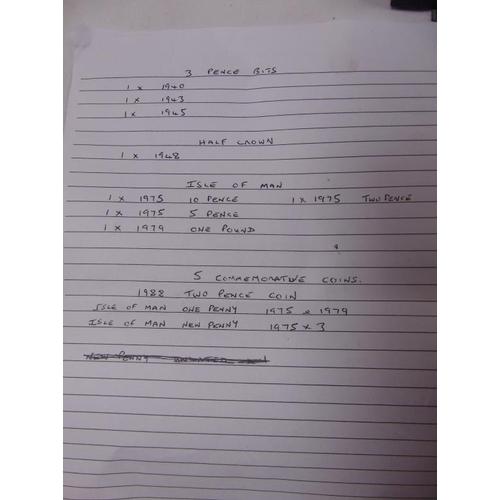 3 PENCE BITS
1 x 1940
1 x 1943
1 x 1945
HALF CROWN
1 x 1948
ISLE OF MAN
1 x 1975 10 PENCE 1 x 1975 TWO PENCE
1 x 1975 5 PENCE
1 x 1979 ONE POUND
5 COMMEMORATIVE COINS.
1988 TWO PENCE COIN
ISLE OF MAN ONE PENNY 1975 & 1979
ISLE OF MAN NEW PENNY 1975 x 3
NEW PENNY